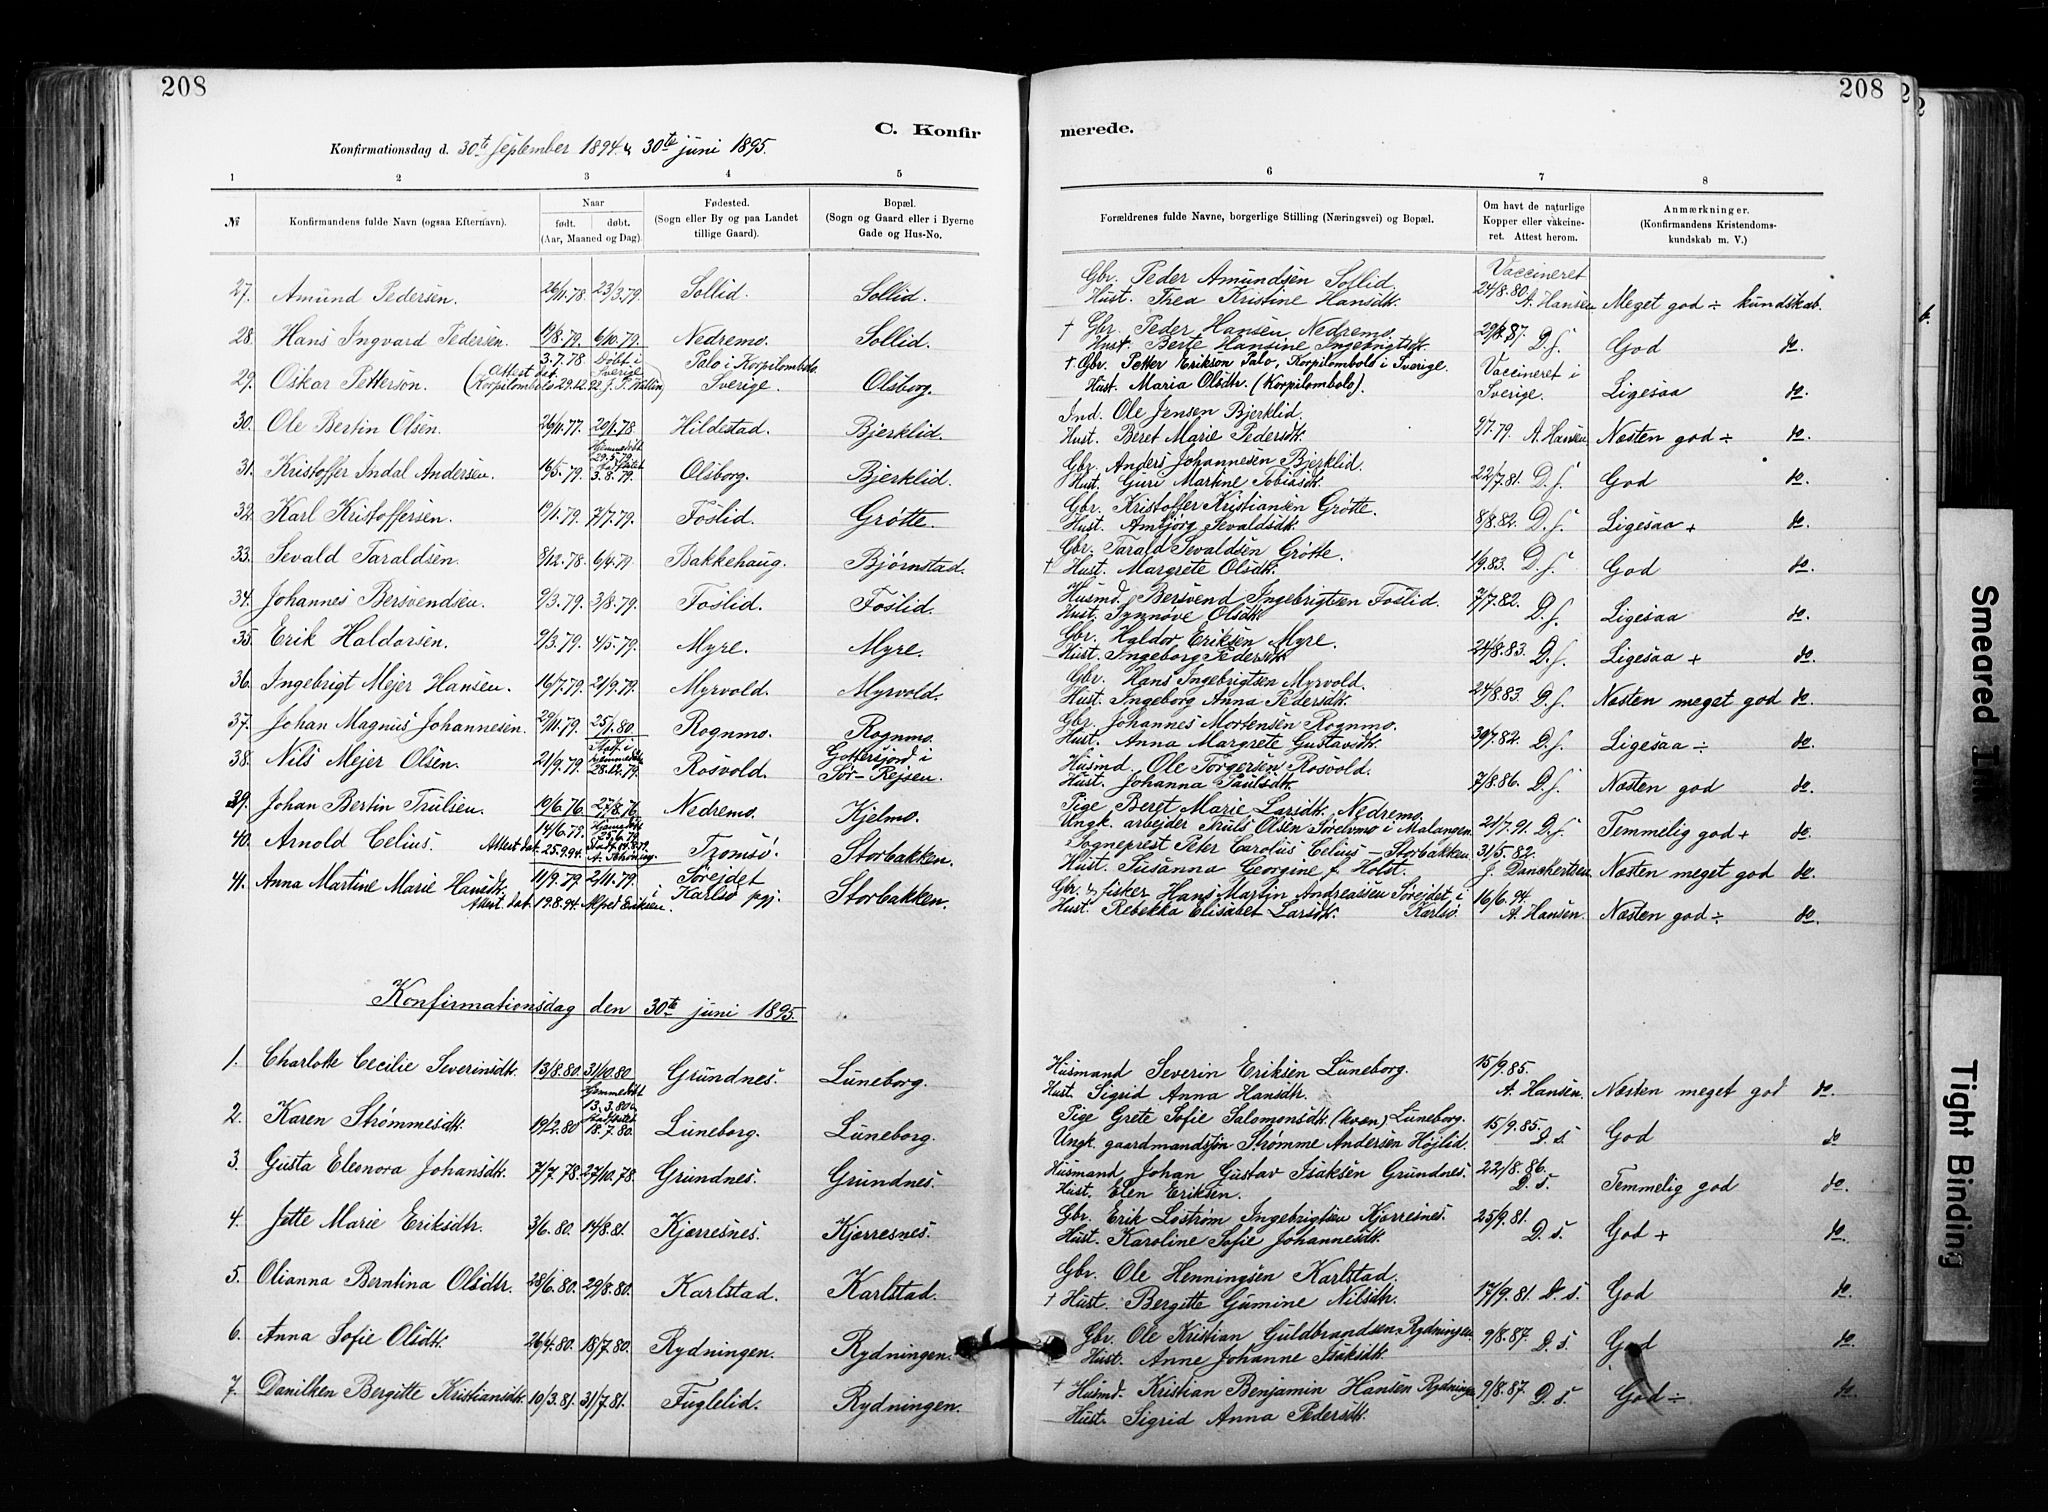 208
C. Konfir
Konfirmationsdag d. 30te September 1894 & 30te juni 1895.
1 2 3 4 5
№ Konfirmandens fulde Navn (ogsaa Efternavn). Naar født. døbt. (Aar, Maaned og Dag). Fødested. (Sogn eller By og paa Landet tillige Gaard). Bopæl. (Sogn og Gaard eller i Byerne Gade og Hus-No.
27. Amund Pedersen. 26/11.78 23/3.79. Sollid. Sollid.
28. Hans Ingvard Pedersen. 19/8.79. 6/10.79. Nedremo. Sollid.
29. Oskar Petterson. (Attest dat. Korpilombolo 29.12.92 J. P. Wallin) 3.7.78 Døbt i Sverige Palo i Korpilombolo Sverige. Olsborg.
30. Ole Bertin Olsen. 26/11.77. 20/1.78 Hildestad. Bjerklid.
31. Kristoffer Indal Andersen. 16/5.79. Hjemmedøbt 29.5.79. 3.8.79. Olsborg. Bjerklid.
32. Karl Kristoffersen. 19/1.79. 7/7.79. Foslid. Grøtte.
33. Sevald Taraldsen. 8/12.78. 6/4.79. Bakkehaug. Bjørnstad.
34. Johannes Bersvendsen. 9/3.79. 3/8.79. Foslid. Foslid.
35. Erik Haldorsen. 9/3.79. 4/5.79. Myre. Myre.
36. Ingebrigt Mejer Hansen. 16/7.79. 21/9.79. Myrvold. Myrvold.
37. Johan Magnus Johannesen. 29/11.79. 25/1.80. Rognmo. Rognmo.
38. Nils Mejer Olsen. 21/9.79. 28.12.79. Rosvold. Gottersjord i Sør-Rejsen.
39. Johan Bertin Trulsen. 10/6.76. 27/8.76. Nedremo. Kjelmo.
40. Arnold Celius. Attest dat. 25.9.94. 14/6.79. Hjemmedøbt 25.6.79. Tromsø. Storbakken.
41. Anna Martine Marie Hansdtr. Attest dat. 19.8.94. Alfred Eriksen. 11/9.79 2/11.79. Sørejdet i Karlsø pgj. Storbakken.
Konfirmationsdag den 30te juni 1895.
1. Charlotte Cecilie Severinsdtr. 13/8.80. 31/10.80 Grundnes. Luneborg.
2. Karen Strømmesdtr. 19/2.80 Hjemmedøbt 13.3.80 18.7.80. Luneborg. Luneborg.
3. Gusta Eleonora Johansdtr. 7/7.78. 27/10.78. Grundnes. Grundnes.
4. Jette Marie Eriksdtr. 3/6.80. 14/8.81. Kjærresnes. Kjærresnes.
5. Olianna Berntina Olsdtr. 28/6.80. 29/8.80. Karlstad. Karlstad.
6. Anna Sofie Olsdtr. 26/4.80. 18/7.80. Rydningen. Rydningen.
7. Danilken Bergitte Kristiansdtr. 10/3.81. 31/7.81. Fuglelid. Rydningen.
208
merede.
6 7 8
Forældrenes fulde Navne, borgerlige Stilling (Næringsvei) og Bopæl. Om havt de naturlige Kopper eller vakcineret. Attest herom. Anmærkninger. (Konfirmandens Kristendomskundskab m. V.)
Gbr. Peder Amundsen Sollid. Vaccineret
Hust. Thea Kristine Hansdtr. 24/8.80. A. Hansen Meget god ÷ kundskab.
† Gbr. Peder Hansen Nedremo. D. s.
Hust. Berte Hansine Ingebrigtsdtr. God do.
† Gbr. Petter Erikson Palo, Korpilombolo i Sverige. Vaccineret i
Hust. Maria Olsdtr. (Korpilombolo). Sverige. Ligesaa do.
Ind. Ole Jensen Bjerklid.
Hust. Beret Marie Pedersdtr. 9/7.79. A. Hansen Næsten god ÷ do.
Gbr. Anders Johannesen Bjerklid.
Hust. Guri Martine Tobiasdtr. 22/7.81. D. s. God do.
Gbr. Kristoffer Kristiansen Grøtte.
Hust. Ambjørg Sevaldsdtr. 8/8.82. D. s. Ligesaa + do.
Gbr. Tarald Sevaldsen Grøtte.
† Hust. Margrete Olsdtr. 1/9.83. D. s. God do.
Husmd. Bersvend Ingebrigtsen Foslid. 7/7.82.
Hust. Synnøve Olsdtr. D. s. Ligesaa do.
Gbr. Haldor Eriksen Myre.
Hust. Ingeborg Pedersdtr. 24/8.83. D. s. Ligesaa + do.
Gbr. Hans Ingebrigtsen Myrvold.
Hust. Ingeborg Anna Pedersdtr. 24/8.83. D. s. Næsten meget god do.
Gbr. Johannes Mortensen Rognmo.
Hust. Anna Margrete Gustavsdtr. 30/7.82. D. s. Ligesaa ÷ do.
Husmd. Ole Torgersen Rosvold.
Hust. Johanna Paulsdtr. 7/8.86. D. s. Næsten god do.
Pige Beret Marie Larsdtr. Nedremo.
Ungk. arbejder Truls Olsen Sørelvmo i Malangen. 21/7.91. D. s. Temmelig god + do.
Sogneprest Peter Carolus Celius – Storbakken. 31/5.82.
Hust. Susanna Georgine f. Holst. J. Danckertsen. Næsten meget god do.
Gbr. & fisker Hans Martin Andreassen Sørejdet i 16/6.94.
Hust. Rebekka Elisabet Larsdtr. Karlsø. A. Hansen. Næsten god ÷ do.
Husmand Severin Eriksen Luneborg. 15/9.85.
Hust. Sigrid Anna Hansdtr. A. Hansen. Næsten meget god do.
Pige Grete Sofie Salomonsdtr. (kvæn) Luneborg. 15/9.85.
Ungk. gaardmandssøn Strømme Andersen Højlid. D. s. God do
Husmand Johan Gustav Isaksen Grundnes. 22/8.86.
Hust. Elen Eriksen. D. s. Temmelig god do.
Gbr. Erik Løstrøm Ingebrigtsen Kjærresnes. 25/9.81.
Hust. Karoline Sofie Johannesdtr. D. s. God + do.
Gbr. Ole Henningsen Karlstad.
† Hust. Bergitte Gumine Nilsdtr. 17/9.81. D. s. God do.
Gbr. Ole Kristian Guldbrandsen Rydningen. 9/8.87. D. s.
Hust. Anne Johanne Isaksdtr. God do.
† Husmd. Kristian Benjamin Hansen Rydningen. 9/8.87. D. s. God ÷ do.
Hust. Sigrid Anna Pedersdtr.
Smeared Ink
Tight Binding